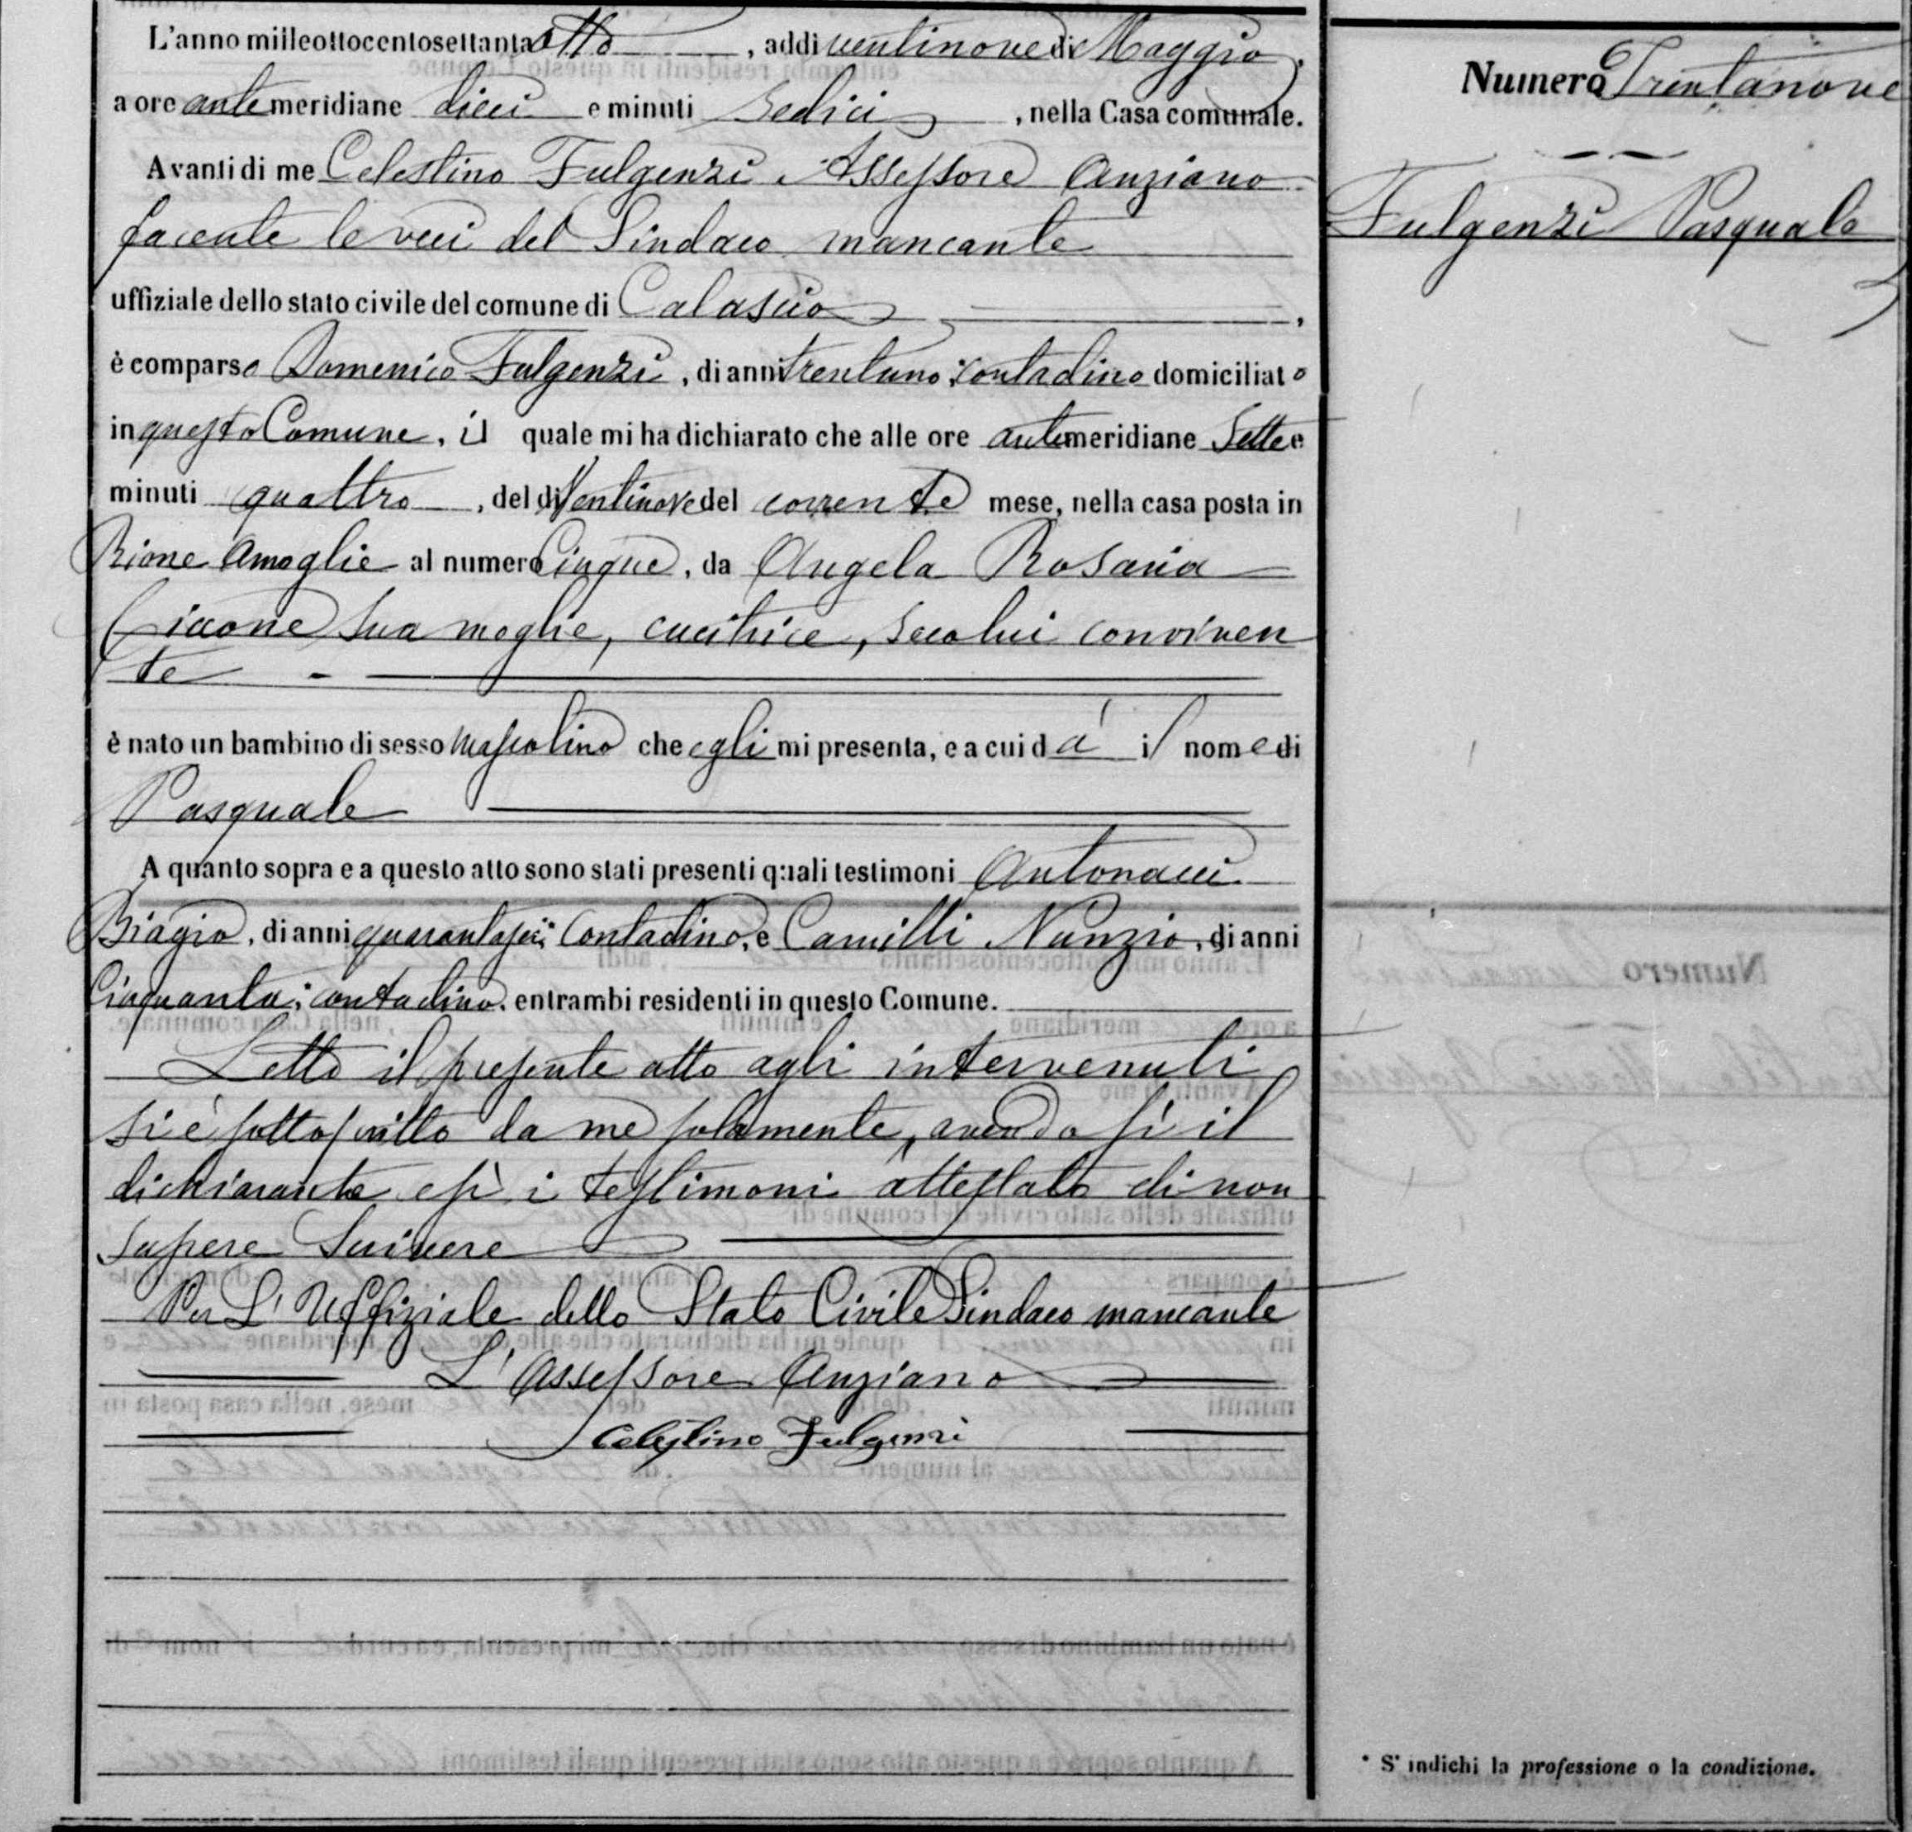 L'anno milleottocentosettantaotto, addì ventinove di Maggio,
a ore antemeridiane dieci e minuti Sedici, nella Casa comunale.
Avanti di me Celestino Fulgenzi Assessore Anziano
facente le veci del Sindaco mancante
uffiziale dello stato civile del comune di Calascio,
è comparso Domenico Fulgenzi, di anni trentuno, contadino domiciliato
in questo Comune, il quale mi ha dichiarato che alle ore antemeridiane Sette e
minuti quattro, del dì Ventinove del corrente mese, nella casa posta in
Rione Amoglie al numero Cinque, da Angela Rosaria
Ciccone sua moglie, cucitrice, secolui conviven
te
è nato un bambino di sesso mascolino che egli mi presenta, e a cui dà il nome di
Pasquale
A quanto sopra e a questo atto sono stati presenti quali testimoni Antonacci
Biagio, di anni quarantasei, Contadino, e Camilli Nunzio, di anni
Cinquanta, contadino, entrambi residenti in questo Comune.
Letto il presente atto agli intervenuti
si è sottoscritto da me solamente, avendo sì il
dichiarante e sì i testimoni attestato di non
sapere Scrivere
Per L'Uffiziale dello Stato Civile Sindaco mancante
L'Assessore Anziano
Celestino Fulgenzi
Numero Trentanove
Fulgenzi Pasquale
* S'indichi la professione o la condizione.